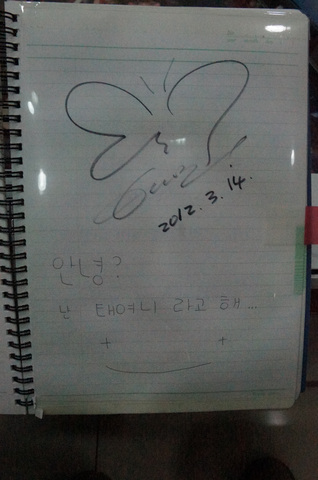 2012. 3. 14.
안녕?
난 태야니 라고 해...